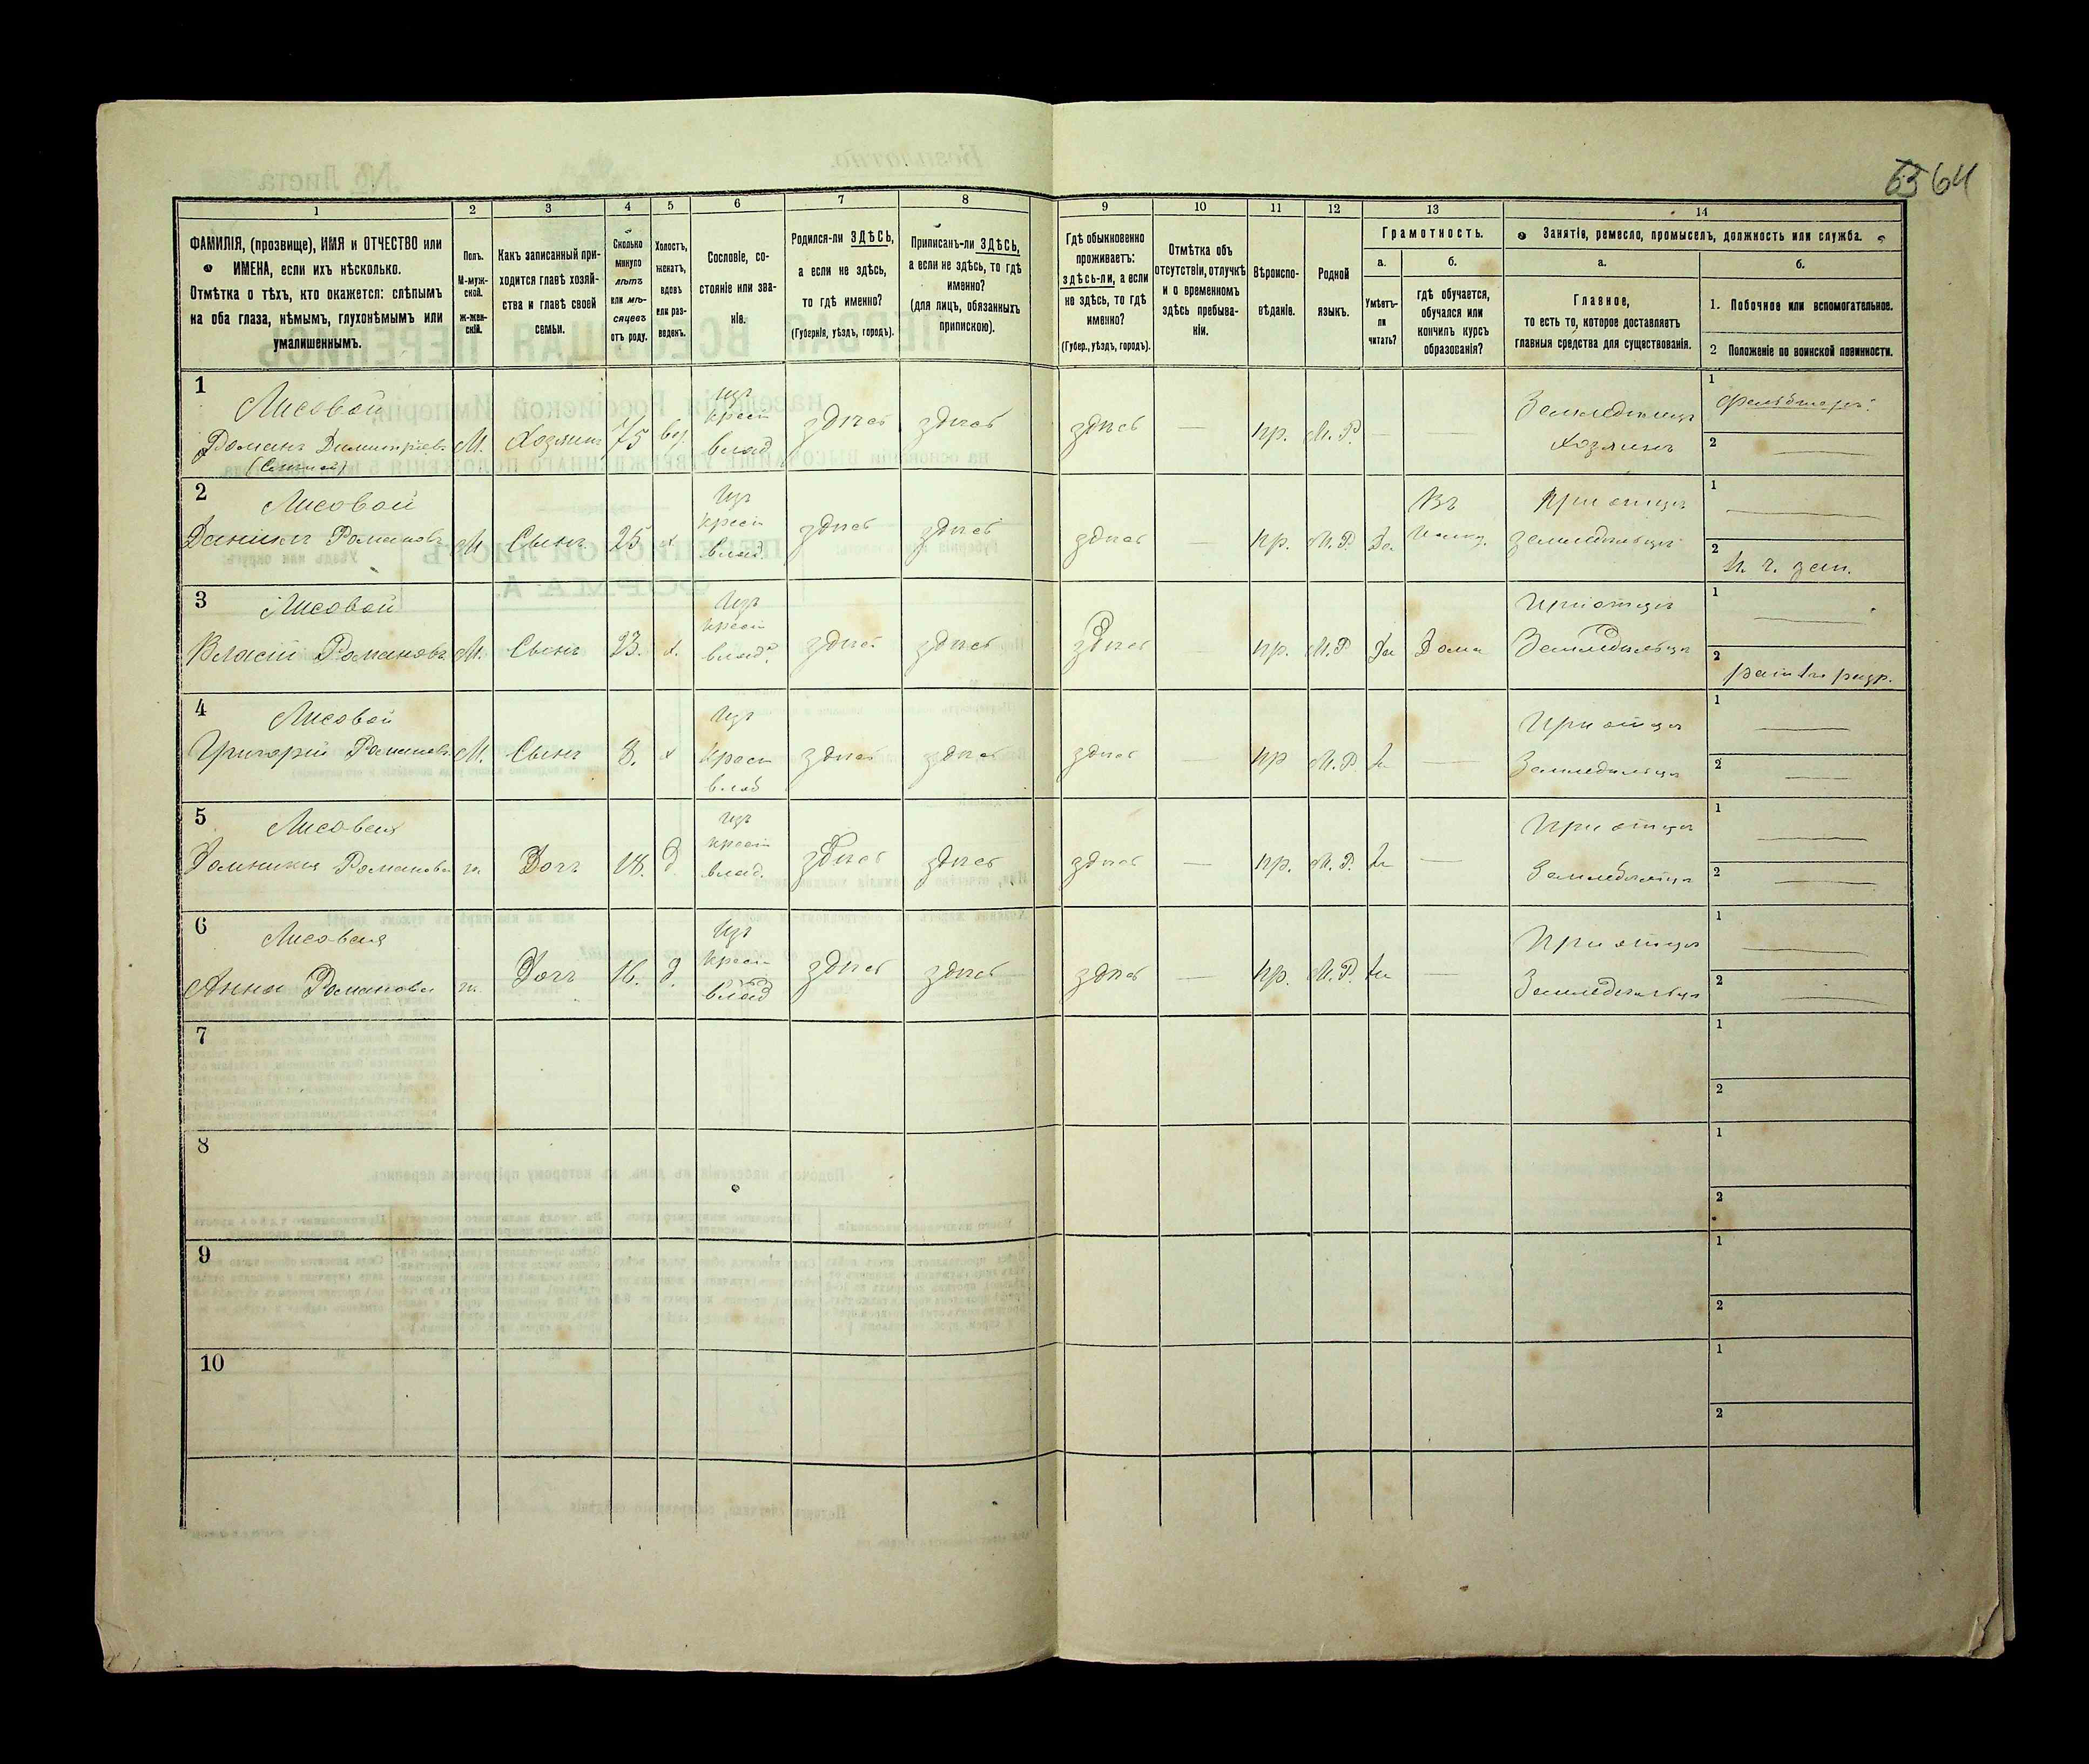 65 64
1 2 3 4 5 6 7 8 9 10 11 12 13 14
ФАМИЛІЯ, (прозвище), ИМЯ и ОТЧЕСТВО или
ИМЕНА, если ихъ нѣсколько.
Отмѣтка о тѣхъ, кто окажется: слѣпымъ
на оба глаза, нѣмымъ, глухонѣмымъ или
умалишеннымъ.
Полъ.
М-муж-
ской.
ж-жен-
скій.
Какъ записанный при-
ходится главѣ хозяй-
ства и главѣ своей
семьи.
Сколько
минуло
лѣтъ
или мѣ-
сяцевъ
отъ роду.
Холостъ,
женатъ,
вдовъ
или раз-
веденъ.
Сословіе, со-
стояніе или зва-
ніе.
Родился-ли ЗДѢСЬ,
а если не здѣсь,
то гдѣ именно?
(Губернія, уѣздъ, городъ).
Приписанъ-ли ЗДѢСЬ,
а если не здѣсь, то гдѣ
именно?
(для лицъ, обязанныхъ
припискою).
Гдѣ обыкновенно
проживаетъ:
здѣсь-ли, а если
не здѣсь, то гдѣ
именно?
(Губер., уѣздъ, городъ).
Отмѣтка объ
отсутствіи, отлучкѣ
и о временномъ
здѣсь пребыва-
ніи.
Вѣроиспо-
вѣданіе.
Родной
языкъ.
Грамотность.
а.
Умѣетъ-
ли
читать?
б.
гдѣ обучается,
обучался или
кончилъ курсъ
образованія?
Занятіе, ремесло, промыселъ, должность или служба.
а.
Главное,
то есть то, которое доставляетъ
главныя средства для существованія.
б.
1. Побочное или вспомогательное.
2 Положеніе по воинской повинности.
1
Лисовой
Романъ Димитріевъ
М. Хозяинъ 75 вд.
изъ
крест
влад
здѣсь здѣсь здѣсь — пр. М.Р. — —
Земледѣлецъ
Хозяинъ
1
2 —
2
Лисовой
Даніилъ Романовъ
М Сынъ 25 х
Изъ
крест
влад.
здѣсь здѣсь здѣсь — пр. М.Р. Да
Въ
При отцѣ
земледѣлецъ
1 —
2
3
Лисовой
Власій Романовъ
М. Сынъ 23. х.
Изъ
крест
влад.
здѣсь здѣсь здѣсь пр. М.Р Да Дома
При отцѣ
Земледѣлецъ
1 —
2
4
Лисовой
Григорій Романовъ
М. Сынъ 8. х
Изъ
крест
влад
здѣсь здѣсь здѣсь — пр М.Р. —
При отцѣ
Земледѣлецъ
1 —
2 —
5
Лисовая
Домникія Романова
ж. Дочь 18. д
изъ
крест
влад.
здѣсь здѣсь здѣсь — пр. М.Р. —
При отцѣ
Земледѣлецъ
1 —
2 —
6
Лисовая
Анна Романова
ж. Дочь 16. д.
Изъ
крест
влад
здѣсь здѣсь здѣсь — пр. М.Р. —
При отцѣ
Земледѣлецъ
1 —
2 —
7
1
2
8
1
2
9
1
2
10
1
2